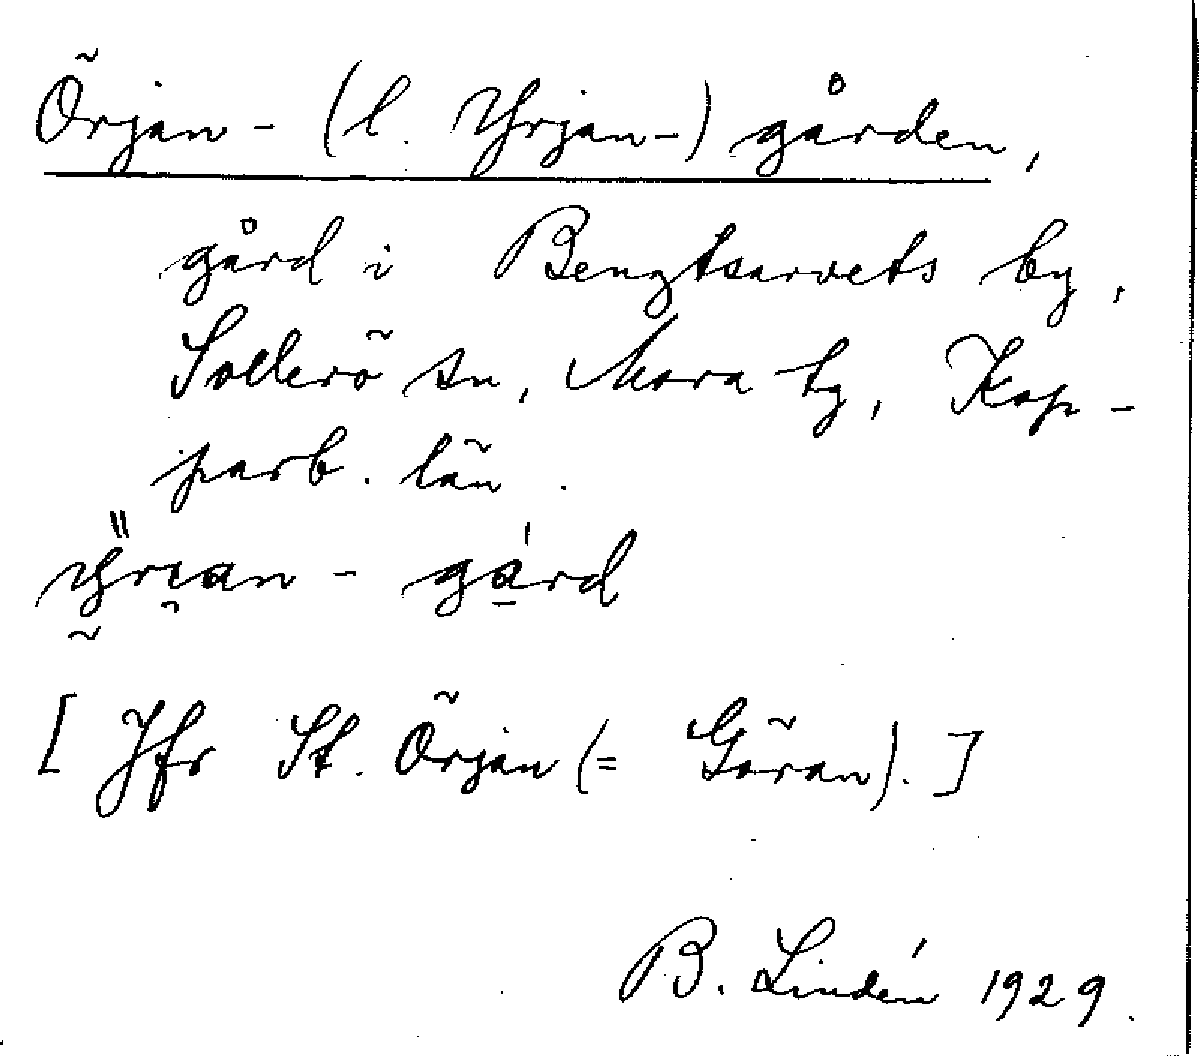 Örjan- (l. Yrjan-) gården,
gård i Bengtsarvets by,
Sollerö sn, Mora tg, Kop-
parb. län.
gård
[Jfr St. Örjan (= Göran).]
B. Lindén 1929.